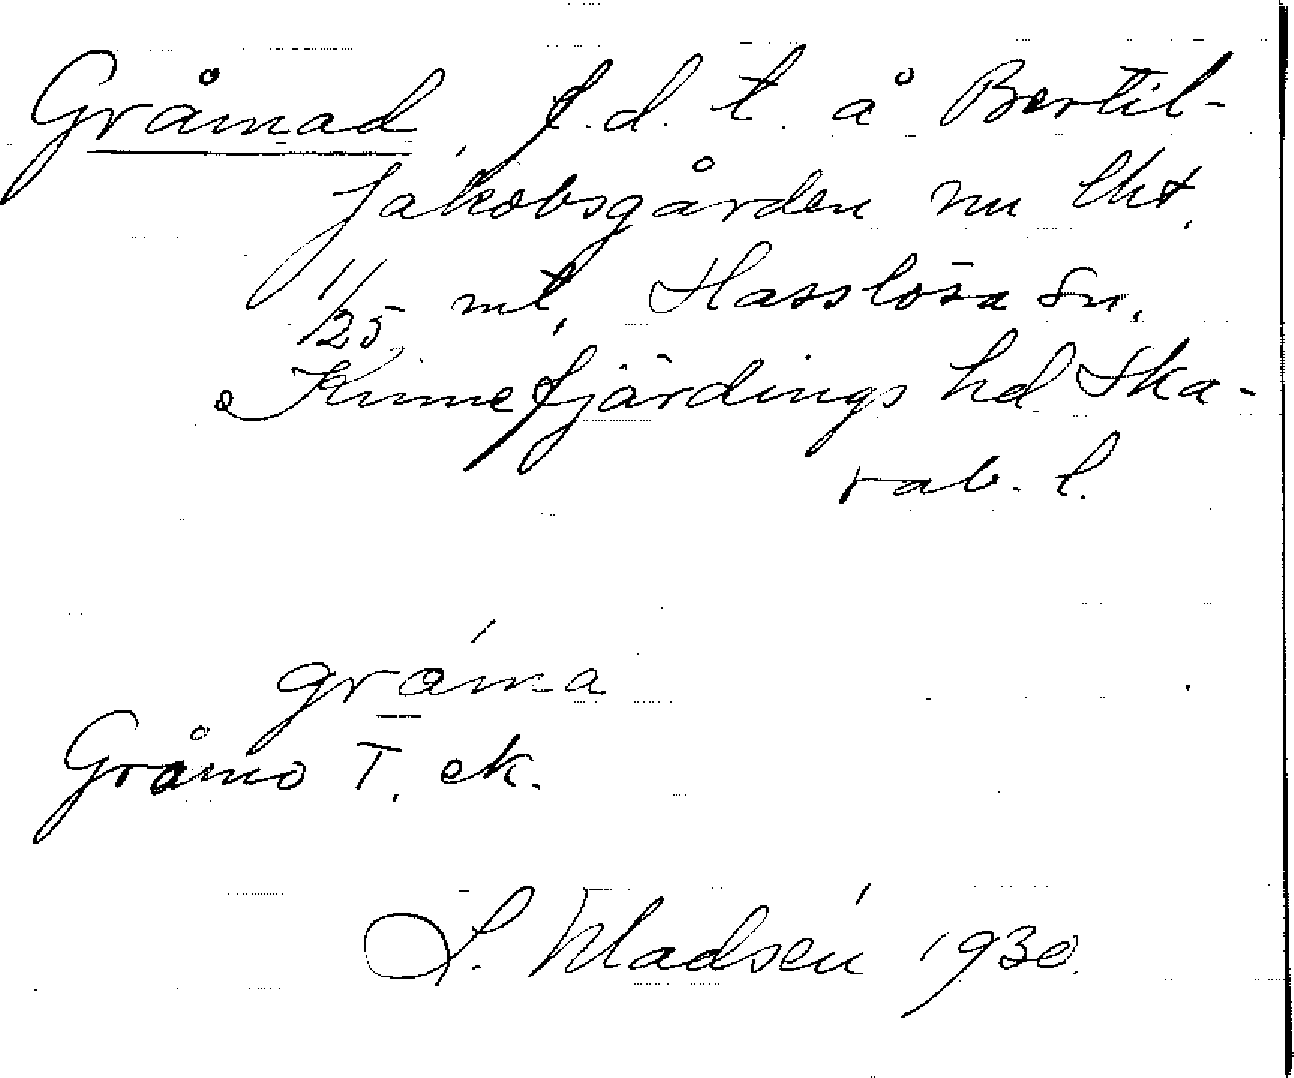 Gråmad, f.d. t. å Bertil-
Jakobsgården nu lht.
1/25 mt, Hasslösa sn,
Kinnefjärdings hd Ska-
rab. l.
gráma
Gråmo T. ek.
S. Wadsén 1930.